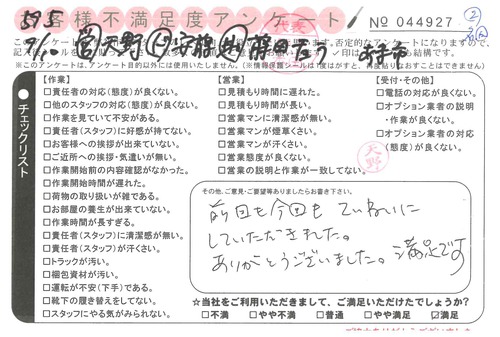 お客様不満足度アンケート
No 044927
※このアンケートは、アンケート目的以外には使用いたしません。
チェックリスト
【作業】
□責任者の対応(態度)が良くない。
□他のスタッフの対応(態度)が良くない。
□作業を見ていて不安がある。
□責任者(スタッフ)に好感が持てない。
□お客様への挨拶が出来ていない。
□ご近所への挨拶・気遣いが無い。
□作業開始前の内容確認がなかった。
□作業開始時間が遅れた。
□荷物の取り扱いが雑である。
□お部屋の養生が出来ていない。
□作業時間が長すぎる。
□責任者(スタッフ)に清潔感が無い。
□責任者(スタッフ)が汗くさい。
□トラックが汚い。
□梱包資材が汚い。
□運転が不安(下手)である。
□靴下の履き替えをしてない。
□スタッフにやる気がみられない。
【営業】
□見積もり時間に遅れた。
□見積もり時間が長い。
□営業マンに清潔感が無い。
□営業マンが煙草くさい。
□営業マンが汗くさい。
□営業態度が良くない。
□営業の説明と作業が一致してない。
【受付・その他】
□電話の対応が良くない。
□オプション業者の説明
・作業が良くない。
□オプション業者の対応
(態度)が良くない。
天野
その他、ご意見・ご要望等ありましたらお書き下さい。
前回も今回も ていねいに
していただきました。
ありがとうございました。満足です
☆当社をご利用いただきまして、ご満足いただけたでしょうか?
□不満 □やや不満 □普通 □やや満足 ☑満足